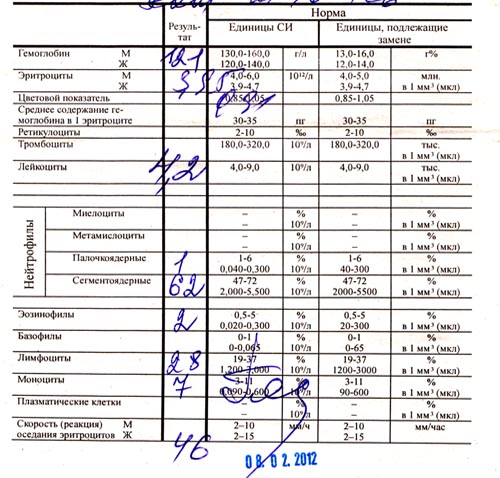 Резуль-
тат
Норма
Единицы СИ
Единицы, подлежащие
замене
Гемоглобин М 121 130,0-160,0 г/л 13,0-16,0 г%
Ж 120,0-140,0 12,0-14,0
Эритроциты М 4,0-6,0 10¹²/л 4,0-5,0 млн.
Ж 3,9-4,7 3,9-4,7 в 1 мм³ (мкл)
Цветовой показатель 0,85-1,05 0,85-1,05
Среднее содержание ге-
моглобина в 1 эритроците 30-35 пг 30-35 пг
Ретикулоциты 2-10 ‰ 2-10 ‰
Тромбоциты 180,0-320,0 10⁹/л 180,0-320,0 тыс.
в 1 мм³ (мкл)
Лейкоциты 4,2 4,0-9,0 10⁹/л 4,0-9,0 тыс.
в 1 мм³ (мкл)
Нейтрофилы
Миелоциты – % – %
– 10⁹/л – в 1 мм³ (мкл)
Метамиелоциты – % – %
– 10⁹/л – в 1 мм³ (мкл)
Палочкоядерные 1 1-6 % 1-6 %
0,040-0,300 10⁹/л 40-300 в 1 мм³ (мкл)
Сегментоядерные 62 47-72 % 47-72 %
2,000-5,500 10⁹/л 2000-5500 в 1 мм³ (мкл)
Эозинофилы 2 0,5-5 % 0,5-5 %
0,020-0,300 10⁹/л 20-300 в 1 мм³ (мкл)
Базофилы 0-1 % 0-1 %
0-0,065 10⁹/л 0-65 в 1 мм³ (мкл)
Лимфоциты 28 19-37 % 19-37 %
1,200-3,000 10⁹/л 1200-3000 в 1 мм³ (мкл)
Моноциты 7 3-11 % 3-11 %
0,090-0,600 10⁹/л 90-600 в 1 мм³ (мкл)
Плазматические клетки – % – %
– 10⁹/л – в 1 мм³ (мкл)
Скорость (реакция) М 2–10 мм/ч 2–10 мм/час
оседания эритроцитов Ж 46 2–15 2–15
08.02.2012